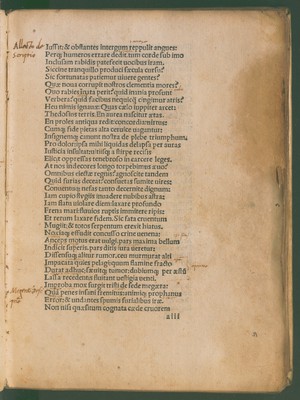 Allecto de scriptio
Iussit: & obstantes intergum reppulit angues:
Perq; humeros errare dedit. tum corde sub imo
Inclusam rabidis patefecit uocibus iram.
Siccine tranquillo produci sæcula cursu?
Sic fortunatas patiemur uiuere gentes?
Quæ noua corrupit nostros clementia mores?
Quo rabies innata perit? quid inania prosunt
Verbera? quid facibus nequicq; cingimur atris?
Heu nimis ignauæ: Quas iuppiter arcet
Theodosius terris. En aurea nascitur ætas.
En proles antiqua redit: concordia: uirtus:
Cumq; fide pietas alta ceruice uagantur:
Insignemq; canunt nostra de plebe triumphum.
Pro dolor ipsa mihi liquidas delapsa per auras
Iusticia insultat: uitiisq; a stirpe recisis
Elicit oppressas tenebroso in carcere leges.
At nos indecores longo torpebimus æuo
Omnibus eiectæ regnis: agnoscite tandem
Quid furias deceat: consuetas sumite uires:
Conuentuq; nefas tanto decernite dignum:
Iam cupio stygiis inuadere nubibus astra:
Iam flatu uiolare diem: laxare profundo
Frena mari: fluuios ruptis immittere ripis:
Et rerum laxare fidem. Sic fata cruentum
Mugiit: & totos serpentum erexit hiatus:
Noxiaq; effudit concusso crine uenena:
Anceps motus erat uulgi. pars maxima bellum
Indicit superis. pars ditis iura ueretur:
Dissensuq; alitur rumor. ceu murmurat alti
Impacata quies pelagi: quum flamine fracto
Durat adhuc: sæuitq; tumor: dubiumq; per æstum
Lassa recedentis fluitant uestigia uenti.
Improba mox surgit tristi de sede megæra:
Quã penes insani fremitus: animiq; prophanus
Error: & undantes spumis furialibus iræ.
Non nisi quæsitum cognata cæde cruorem
a iii